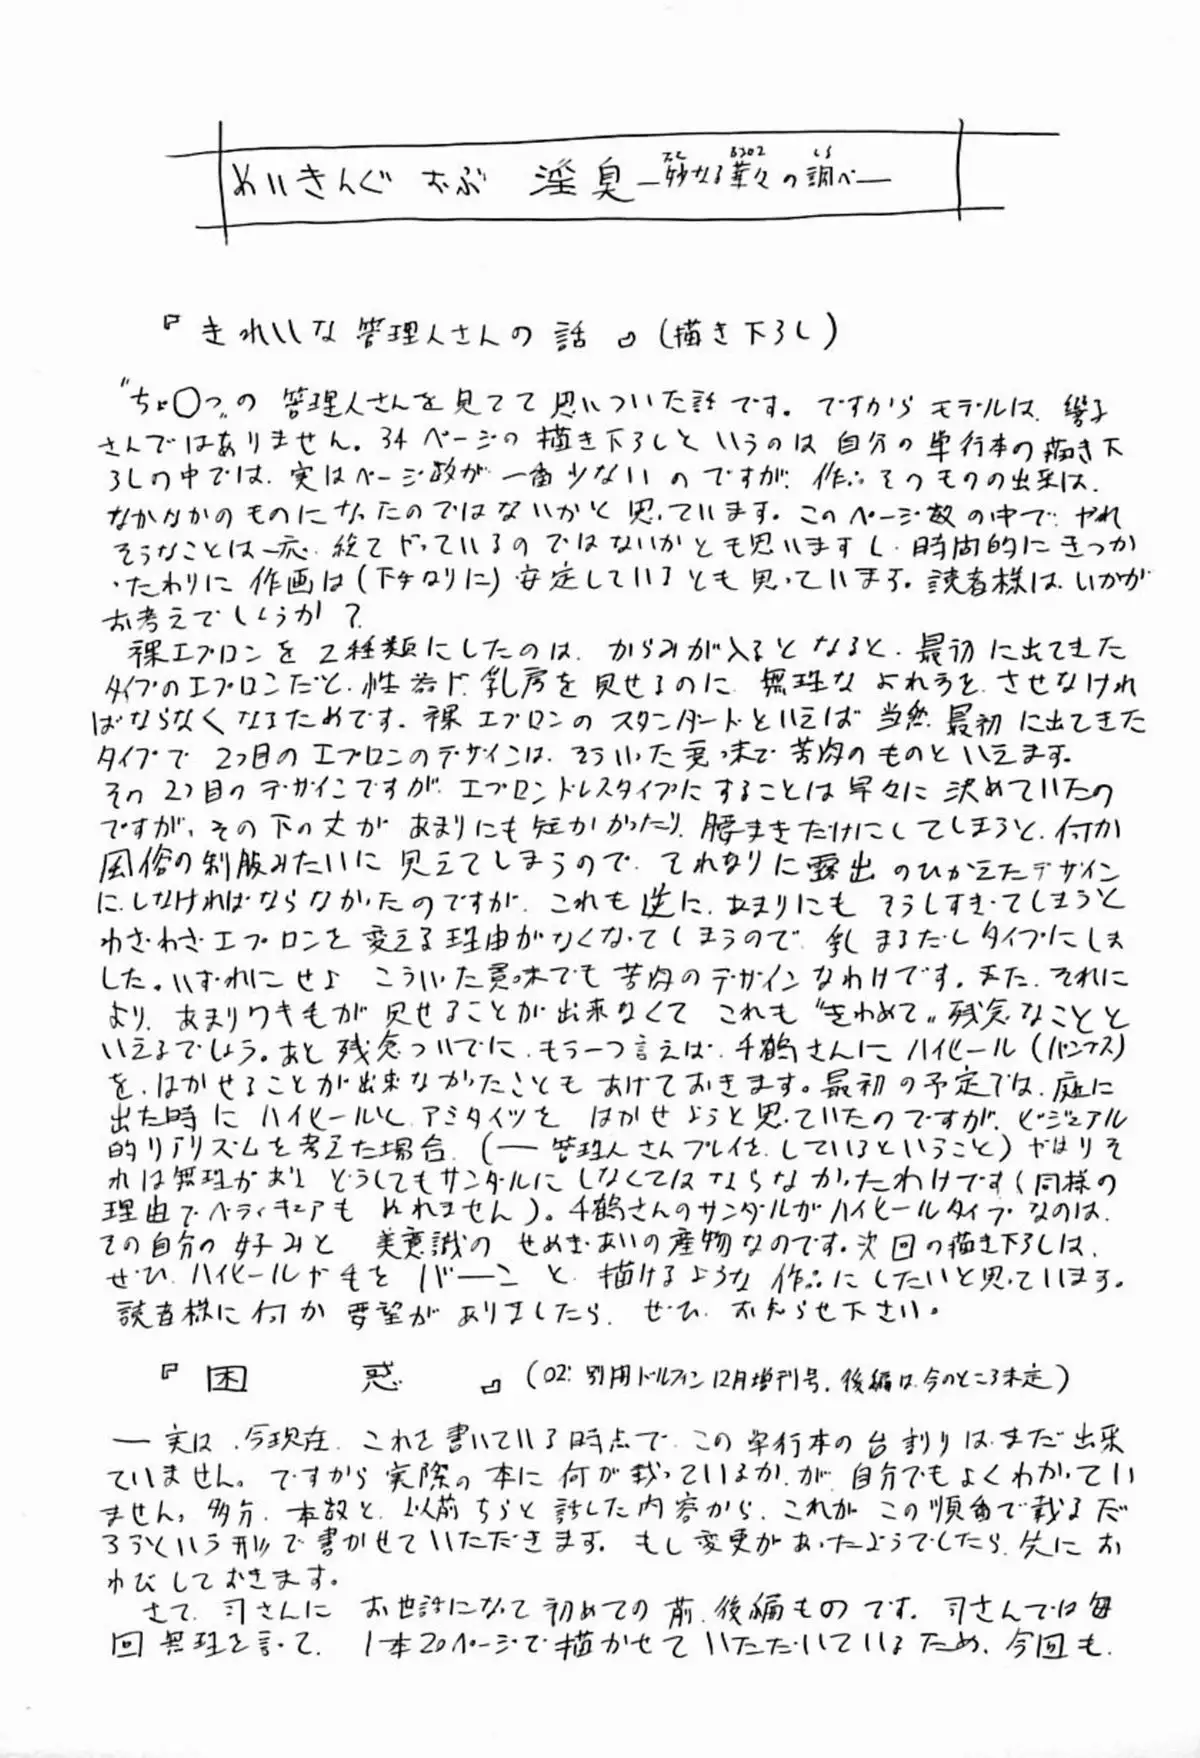 めいきんぐ おぶ 淫臭 ―妙なる華々の調べ―
『きれいな管理人さんの話』(描き下ろし)
"ちょ○っ"の管理人さんを見てて思いついた話です。ですからモデルは、響子
さんではありません。34ページの描き下ろしというのは自分の単行本の描き下
ろしの中では、実はページ数が一番少ないのですが、作品そのものの出来は、
なかなかのものになったのではないかと思っています。このページ数の中で、やれ
そうなことは一応、総てやっているのではないかとも思いますし、時間的にきつか
ったわりに作画は(下手なりに)安定しているとも思っています。読者様は、いかが
お考えでしょうか?
裸エプロンを2種類にしたのは、からみが入るとなると、最初に出てきた
タイプのエプロンだと、性器や乳房を見せるのに、無理なよれ方を、させなけれ
ばならなくなるためです。裸エプロンのスタンダードといえば当然、最初に出てきた
タイプで2つ目のエプロンのデザインは、そういった意味で苦肉のものといえます。
その2つ目のデザインですが、エプロンドレスタイプにすることは早々に決めていたの
ですが、その下の丈があまりにも短かかったり、腰まきだけにしてしまうと、何か
風俗の制服みたいに見えてしまうので、それなりに露出のひかえたデザイン
に、しなければならなかったのですが、これも逆に、あまりにもそうしすぎてしまうと
わざわざエプロンを変える理由がなくなってしまうので、乳まるだしタイプにしま
した。いずれにせよこういった意味でも苦肉のデザインなわけです。また、それに
より、あまりワキ毛が見せることが出来なくてこれも"きわめて"残念なことと
いえるでしょう。あと残念ついでに、もう一つ言えば、千鶴さんにハイヒール(パンプス)
を、はかせることが出来なかったこともあげておきます。最初の予定では、庭に
出た時にハイヒールと、アミタイツをはかせようと思っていたのですが、ビジュアル
的リアリズムを考えた場合、(―管理人さんプレイを、しているということ)やはりそ
れは無理があり、どうしてもサンダルにしなくてはならなかったわけです(同様の
理由でペディキュアもぬれません)。千鶴さんのサンダルがハイヒールタイプなのは、
その自分の好みと美意識のせめぎあいの産物なのです。次回の描き下ろしは、
ぜひ、ハイヒールや毛をバーンと、描けるような作品にしたいと思っています。
読者様に何か要望がありましたら、ぜひ、お知らせ下さい。
『困惑』(02:別冊ドルフィン12月増刊号、後編は今のところ未定)
―実は、今現在、これを書いている時点で、この単行本の台割りは、まだ出来
ていません。ですから実際の本に何が載っているか、が、自分でもよくわかってい
ません。多分、本数と、以前ちらと話した内容から、これがこの順番で載るだ
ろうという形で書かせていただきます。もし変更があったようでしたら、先にお
わびしておきます。
さて、司さんにお世話になって初めての前、後編ものです。司さんでは毎
回無理を言って、1本20ページで描かせていただいているため、今回も、